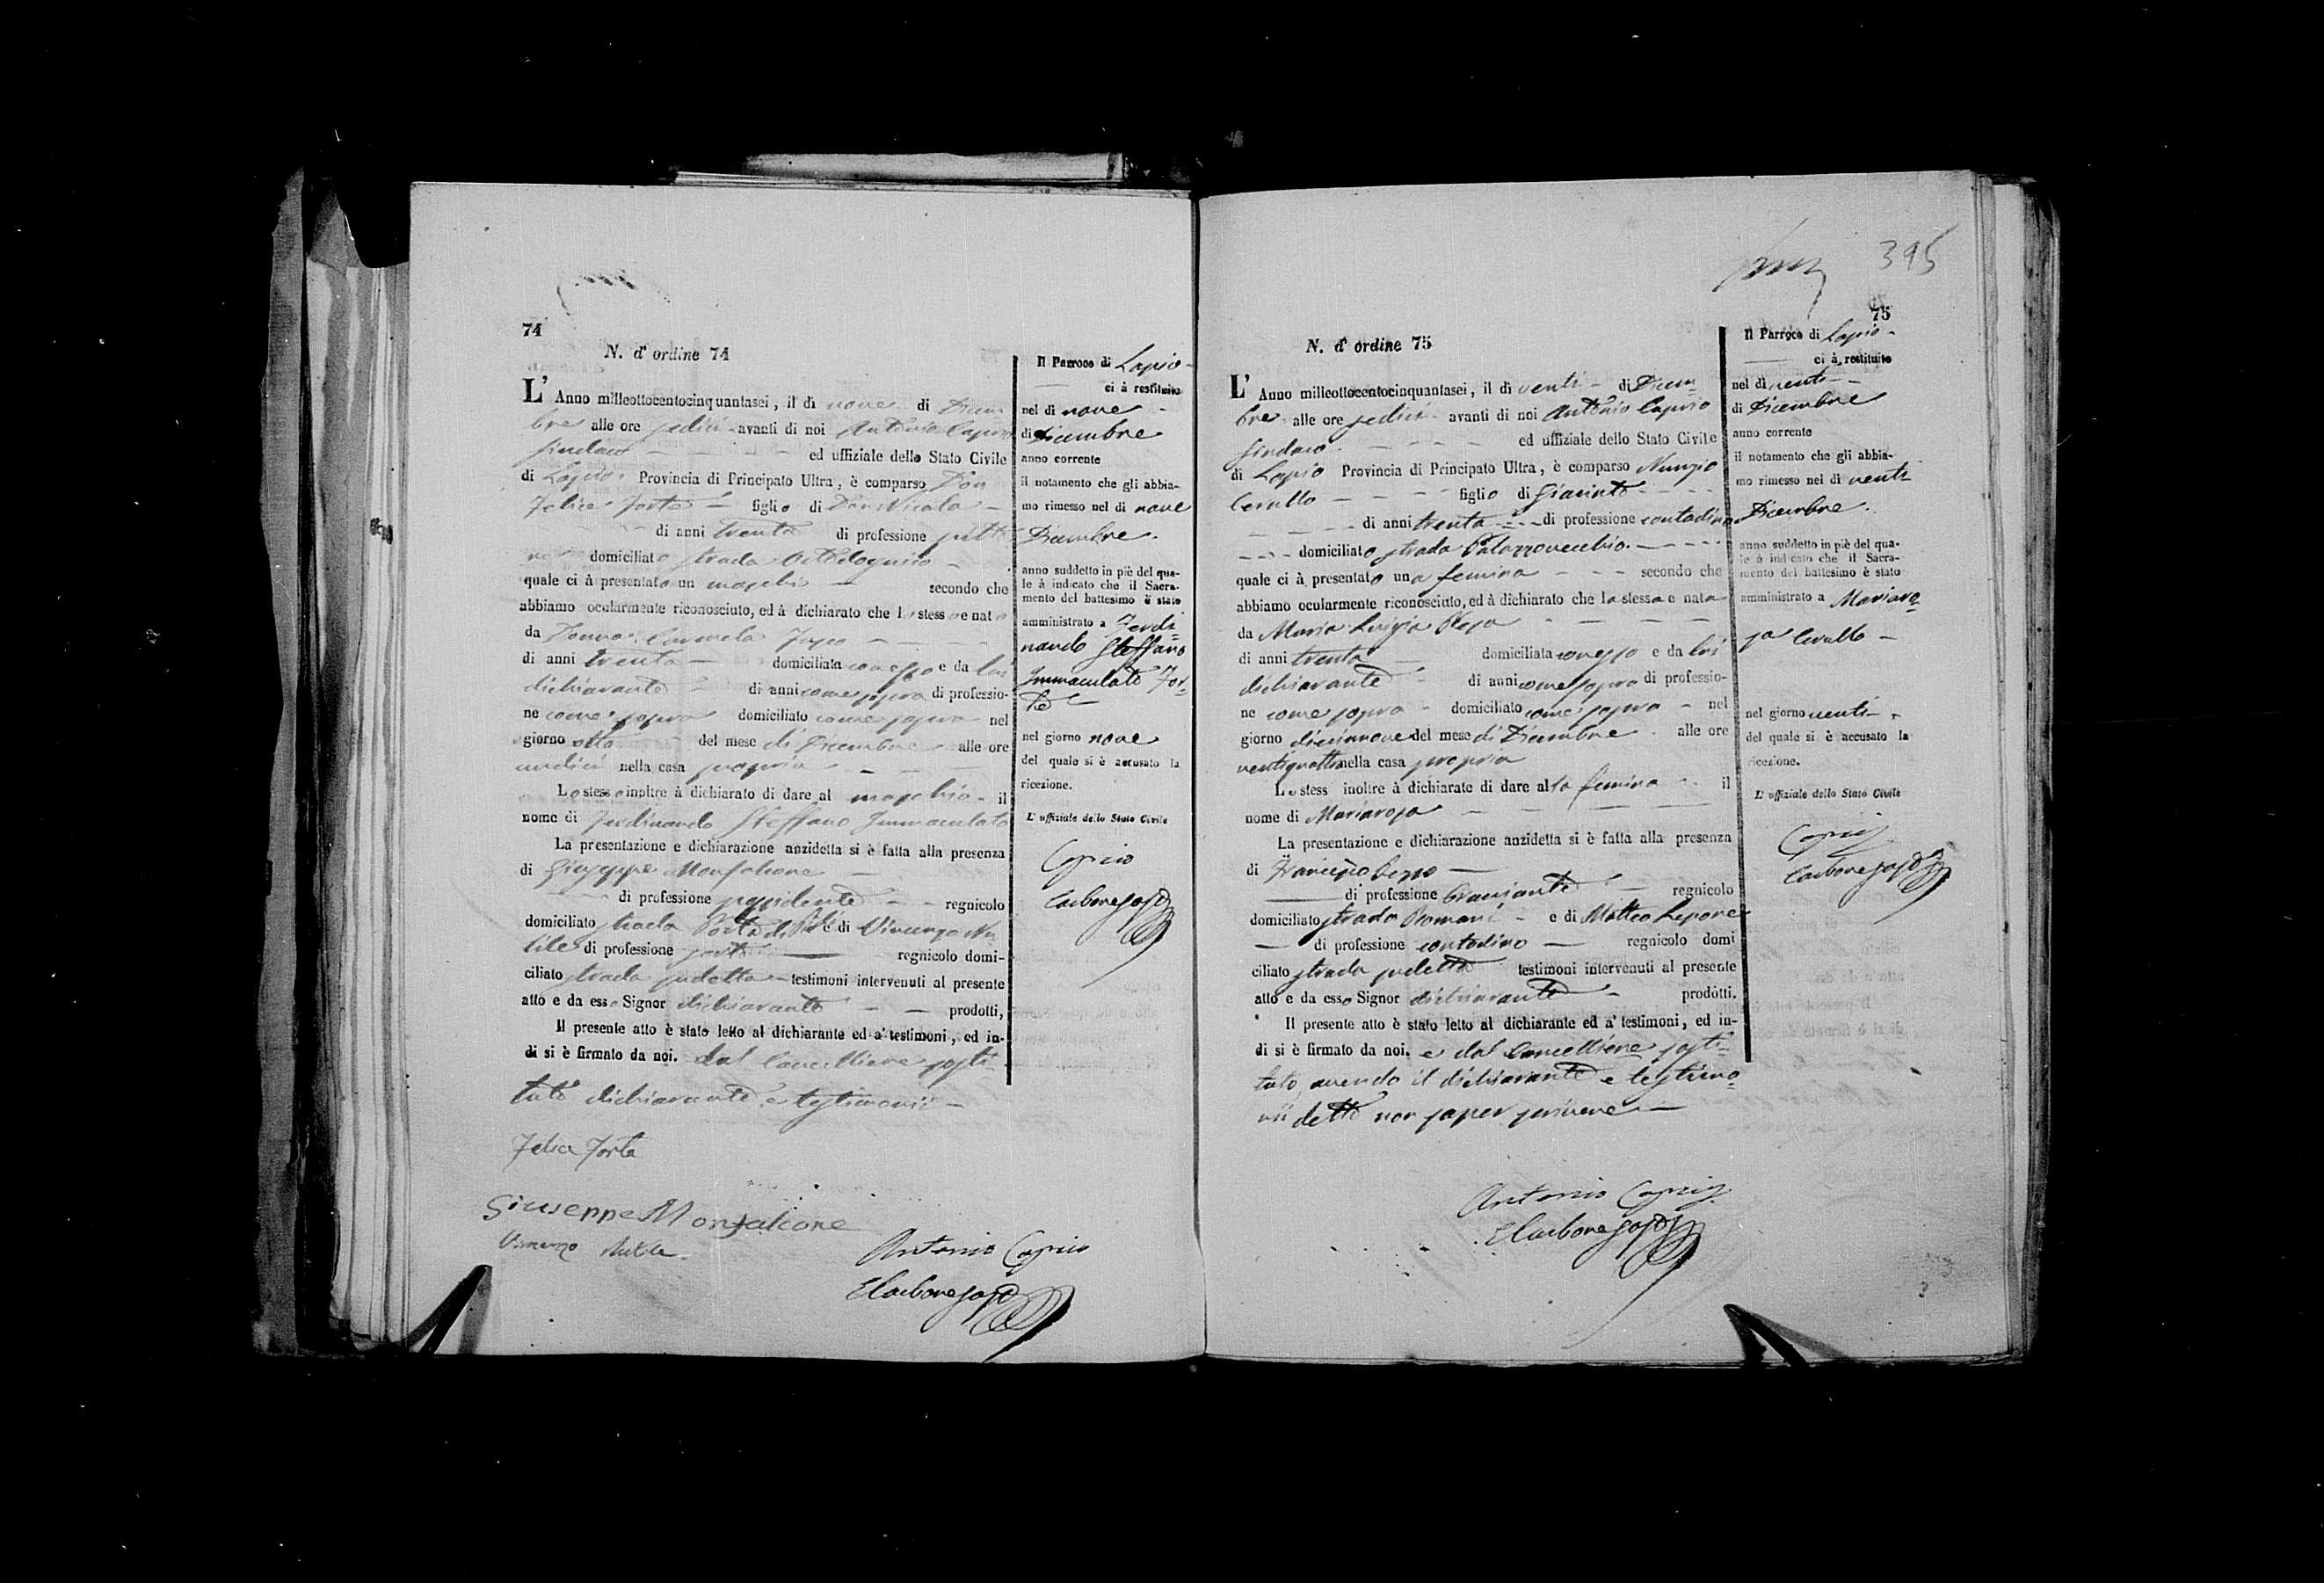 74
N. d' ordine 74
L' Anno milleottocentocinquantasei, il di nove di Dicem
bre alle ore sedici avanti di noi Antonio Caprio
Sindaco ed uffiziale dello Stato Civile
di Lapio Provincia di Principato Ultra, è comparso Don
Felice Forte figlio di Don Nicola
di anni trenta di professione
domiciliato strada
quale ci à presentato un maschio secondo che
abbiamo ocularmente riconosciuto, ed à dichiarato che lo stesso e nato
da Donna Carmela
di anni trenta domiciliata con esso e da lui
dichiarante di anni come sopra di professio-
ne come sopra domiciliato come sopra nel
giorno otto del mese di Dicembre alle ore
undici nella casa propria
Lo stesso inoltre à dichiarato di dare al maschio il
nome di Ferdinando Steffano Immaculato
La presentazione e dichiarazione anzidetta si è fatta alla presenza
di Giuseppe Monfalcone
di professione possidente regnicolo
domiciliato strada Porta di e di Vincenzo Nu
tile di professione regnicolo domi-
ciliato strada sudetta testimoni intervenuti al presente
atto e da esso Signor dichiarante prodotti,
Il presente atto è stato letto al dichiarante ed a' testimoni, ed in-
di si è firmato da noi. dal Cancelliere sosti
tuto dichiarante e testimonii
Felice Forte
Giuseppe Monfalcone
Vincenzo Nutile
Antonio Caprio
E Carbone sosto
Il Parroco di Lapio
ci à restituito
nel di nove
di Dicembre
anno corrente
il notamento che gli abbia-
mo rimesso nel di nove
Dicembre
anno suddetto in piè del qua-
le à indicato che il Sacra-
mento del battesimo è stato
amministrato a Ferdi
nando Steffano
Immaculato For
te
nel giorno nove
del quale si è accusato la
ricezione.
L' uffiziale dello Stato Civile
Caprio
Carbone sosto
395
75
N. d' ordine 75
L' Anno milleottocentocinquantasei, il di venti di Dicem
bre alle ore sedici avanti di noi Antonio Caprio
Sindaco ed uffiziale dello Stato Civile
di Lapio Provincia di Principato Ultra, è comparso Nunzio
Cerullo figlio di Giacinto
di anni trenta di professione contadino
domiciliato strada Palazzovecchio
quale ci à presentato una femina secondo che
abbiamo ocularmente riconosciuto, ed à dichiarato che la stessa e nata
da Maria Luigia
di anni trenta domiciliata con esso e da lui
dichiarante di anni come sopra di professio-
ne come sopra domiciliato come sopra nel
giorno diecinnove del mese di Dicembre alle ore
ventiquattro nella casa propria
Lo stess inoltre à dichiarato di dare alla femina il
nome di Mariarosa
La presentazione e dichiarazione anzidetta si è fatta alla presenza
di Francesco
di professione Bracciante regnicolo
domiciliato strada Romani e di Matteo Lepore
di professione contadino regnicolo domi
ciliato strada sudetta testimoni intervenuti al presente
atto e da esso Signor dichiarante prodotti.
Il presente atto è stato letto al dichiarante ed a' testimoni, ed in-
di si è firmato da noi. e dal Cancelliere sosti
tuto avendo il dichiarante e testimo
nii detto non saper scrivere
Antonio Caprio
E Carbone sosto
Il Parroco di Lapio
ci à restituito
nel di venti
di Dicembre
anno corrente
il notamento che gli abbia-
mo rimesso nel di venti
Dicembre
anno suddetto in piè del qua-
le à indicato che il Sacra-
mento del battesimo è stato
amministrato a Mariaro
sa Cerullo
nel giorno venti
del quale si è accusato la
ricezione.
L' uffiziale dello Stato Civile
Caprio
Carbone sosto